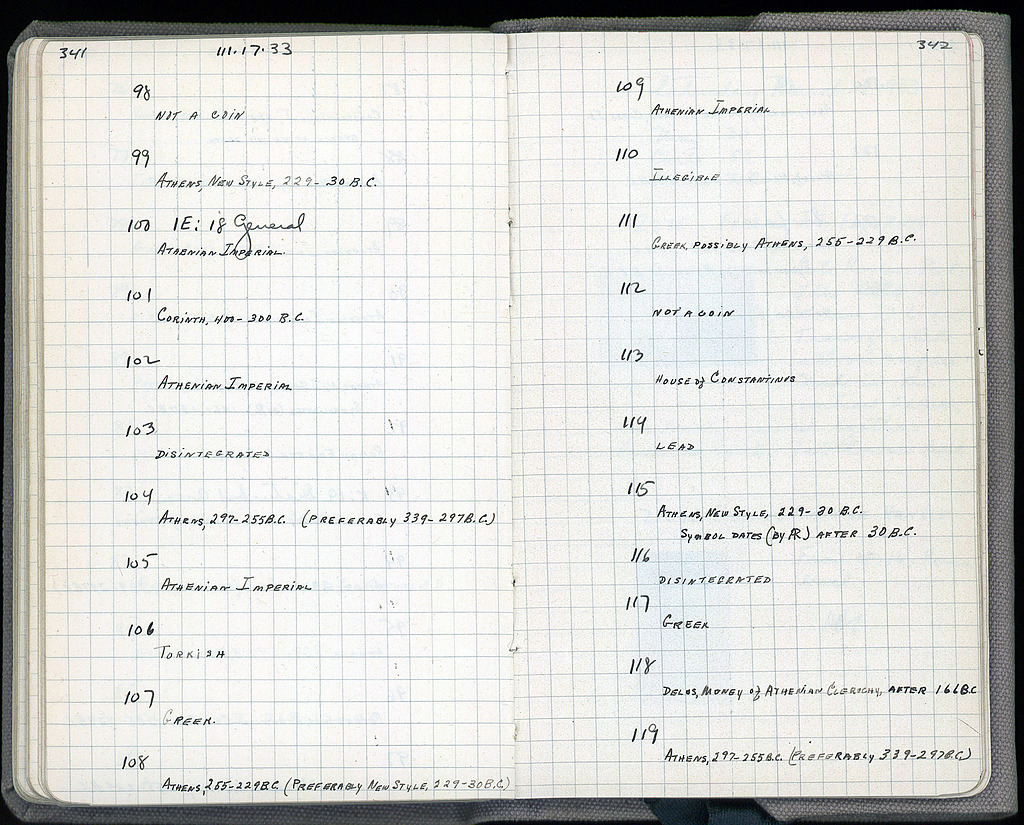 341
III·17·33
98
NOT A COIN
99
ATHENS, NEW STYLE, 229-30 B.C.
100 1E: 18 General
ATHENIAN IMPERIAL.
101
CORINTH, 400-300 B.C.
102
ATHENIAN IMPERIAL
103
DISINTEGRATED
104
ATHENS, 297-255B.C. (PREFERABLY 339-297B.C.)
105
ATHENIAN IMPERIAL
106
TORKISH
107
GREEK.
108
ATHENS, 255-229B.C. (PREFERABLY NEW STYLE, 229-30B.C.)
342
109
ATHENIAN IMPERIAL
110
ILLEGIBLE
111
GREEK, POSSIBLY ATHENS, 255-229 B.C.
112
NOT A COIN
113
HOUSE of CONSTANTINUS
114
LEAD
115
ATHENS, NEW STYLE, 229-30 B.C.
SYMBOL DATES (BY AR) AFTER 30 B.C.
116
DISINTEGRATED
117
GREEK
118
DELOS, MONEY of ATHENIAN CLERUCHY, AFTER 166B.C
119
ATHENS, 297-255B.C. (PREFERABLY 339-297B.C.)